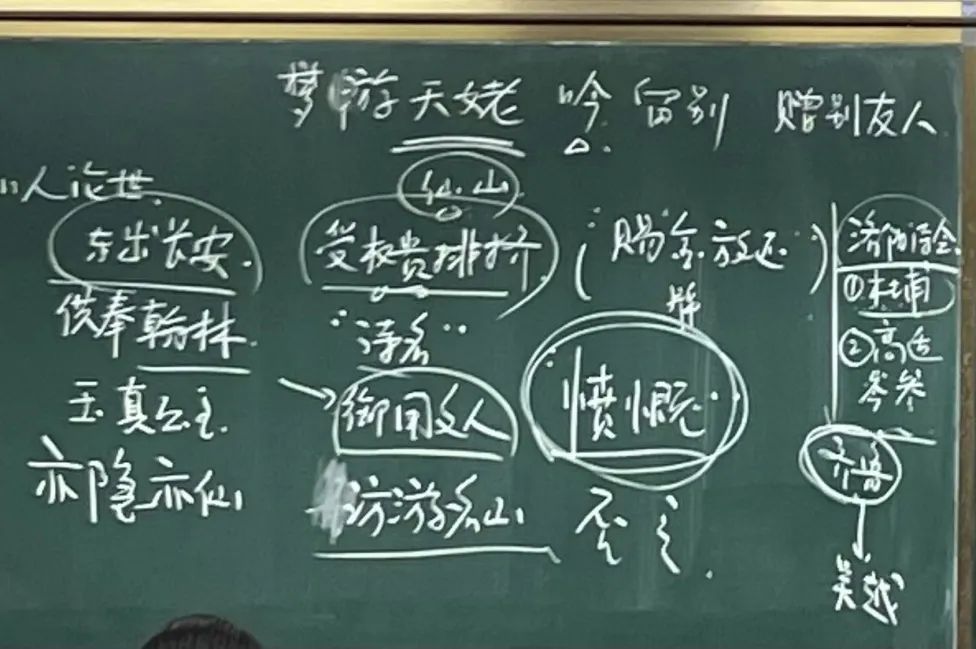 梦游天姥 吟 留别 赠别友人
人论世.
仙山
东出长安.
受权贵排挤.
(赐金放还)
洛阳
供奉翰林.
"浮名"
①杜甫
②高适
岑参
玉真公主.
→御用文人
愤慨.
齐鲁
亦隐亦仙
访游名山
↓
吴越